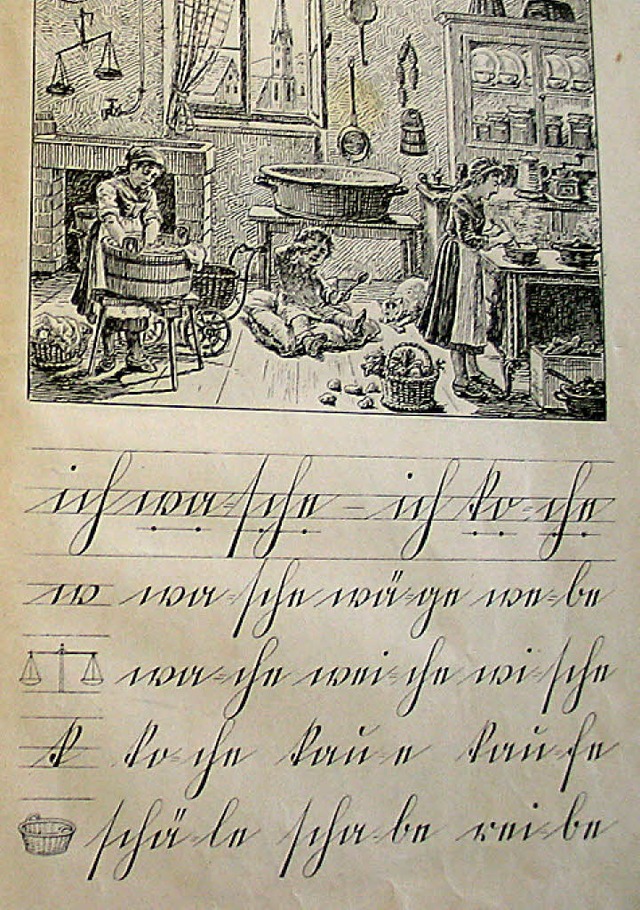 ich wa-sche – ich ko-che
w wa-sche wä-ge we-be
wa-che wei-che wi-sche
k ko-che kau-e kau-fe
schä-le scha-be rei-be